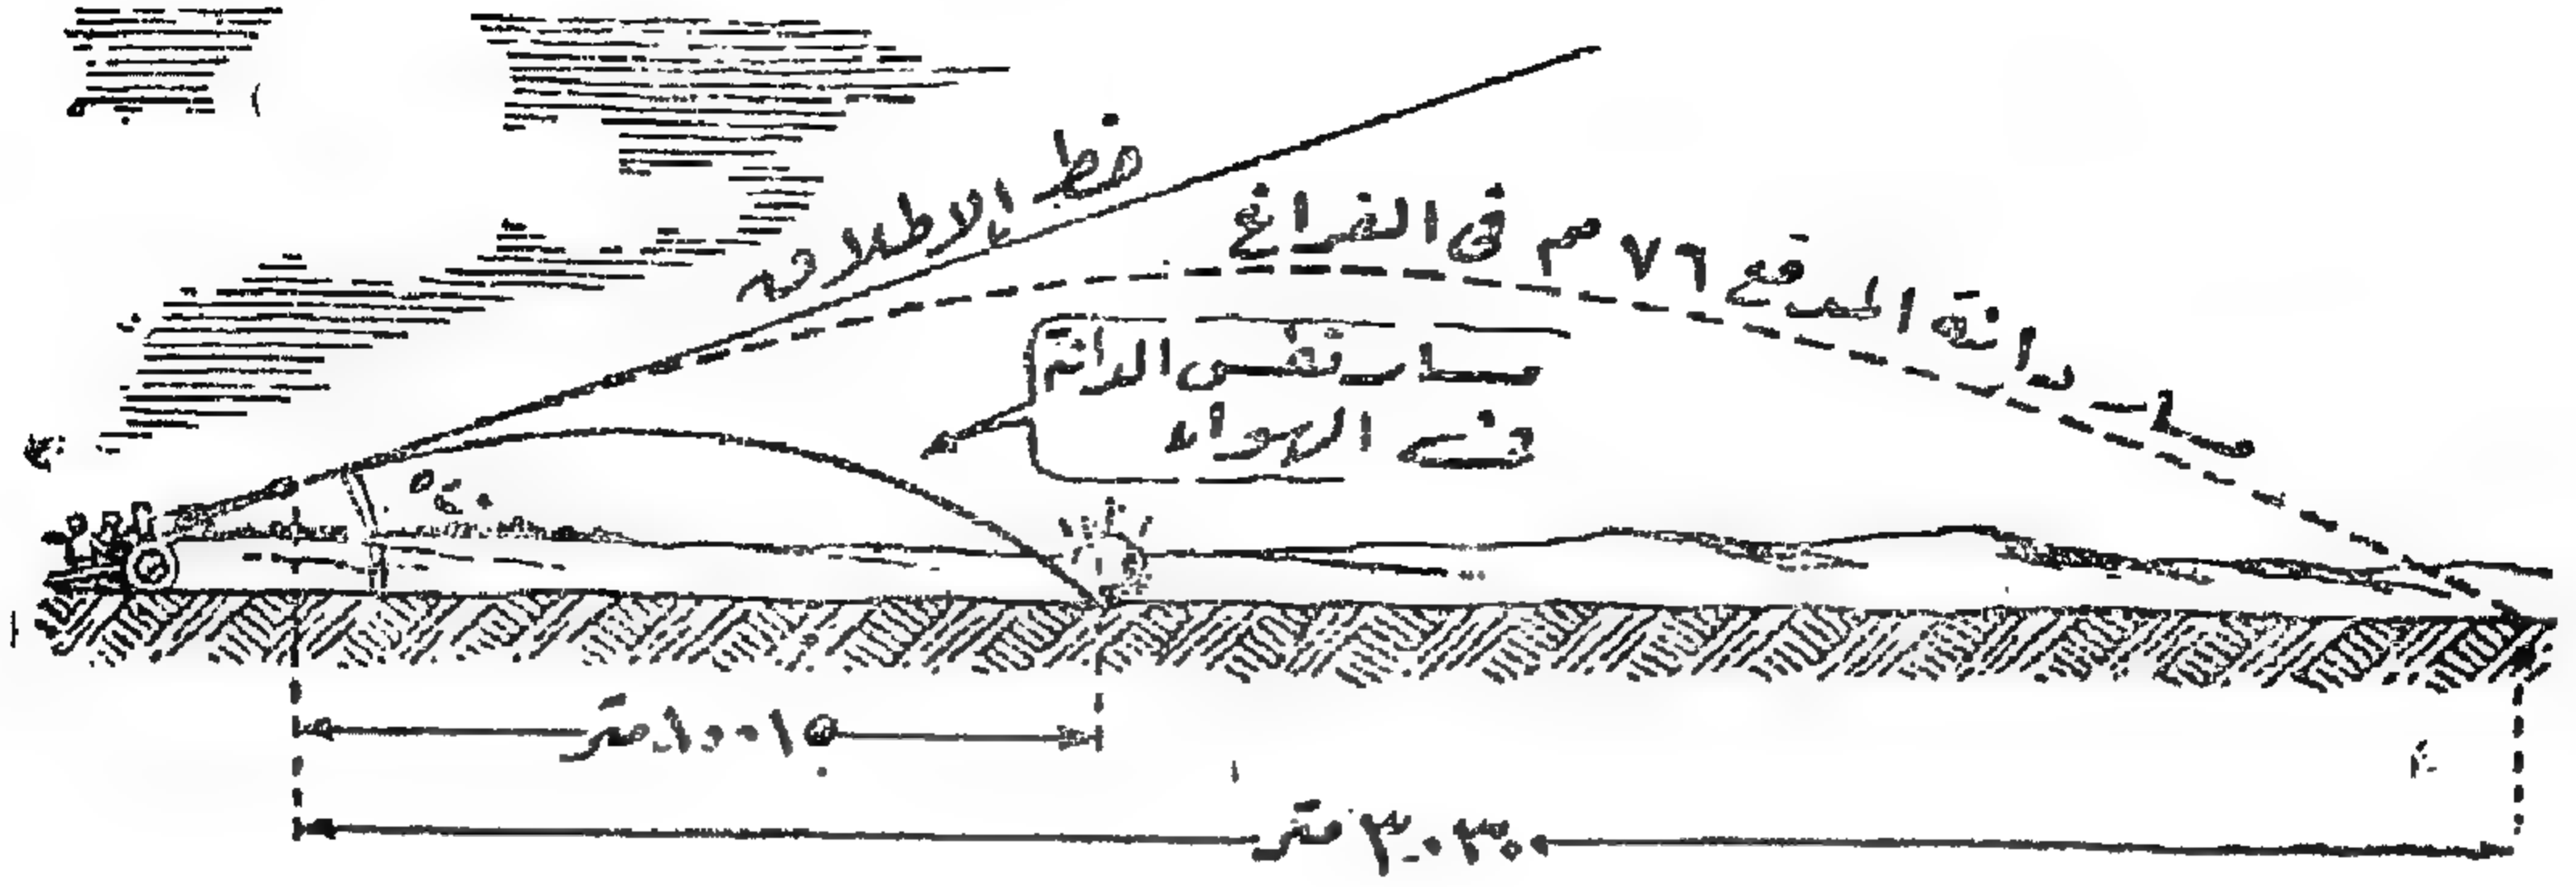 خط الإطلاق
مسار دانة المدفع ٧٦ مم فى الفراغ
مسار نفس الدانة
فى الهواء
٢٠°
متر
٣٠٣٠٠ متر